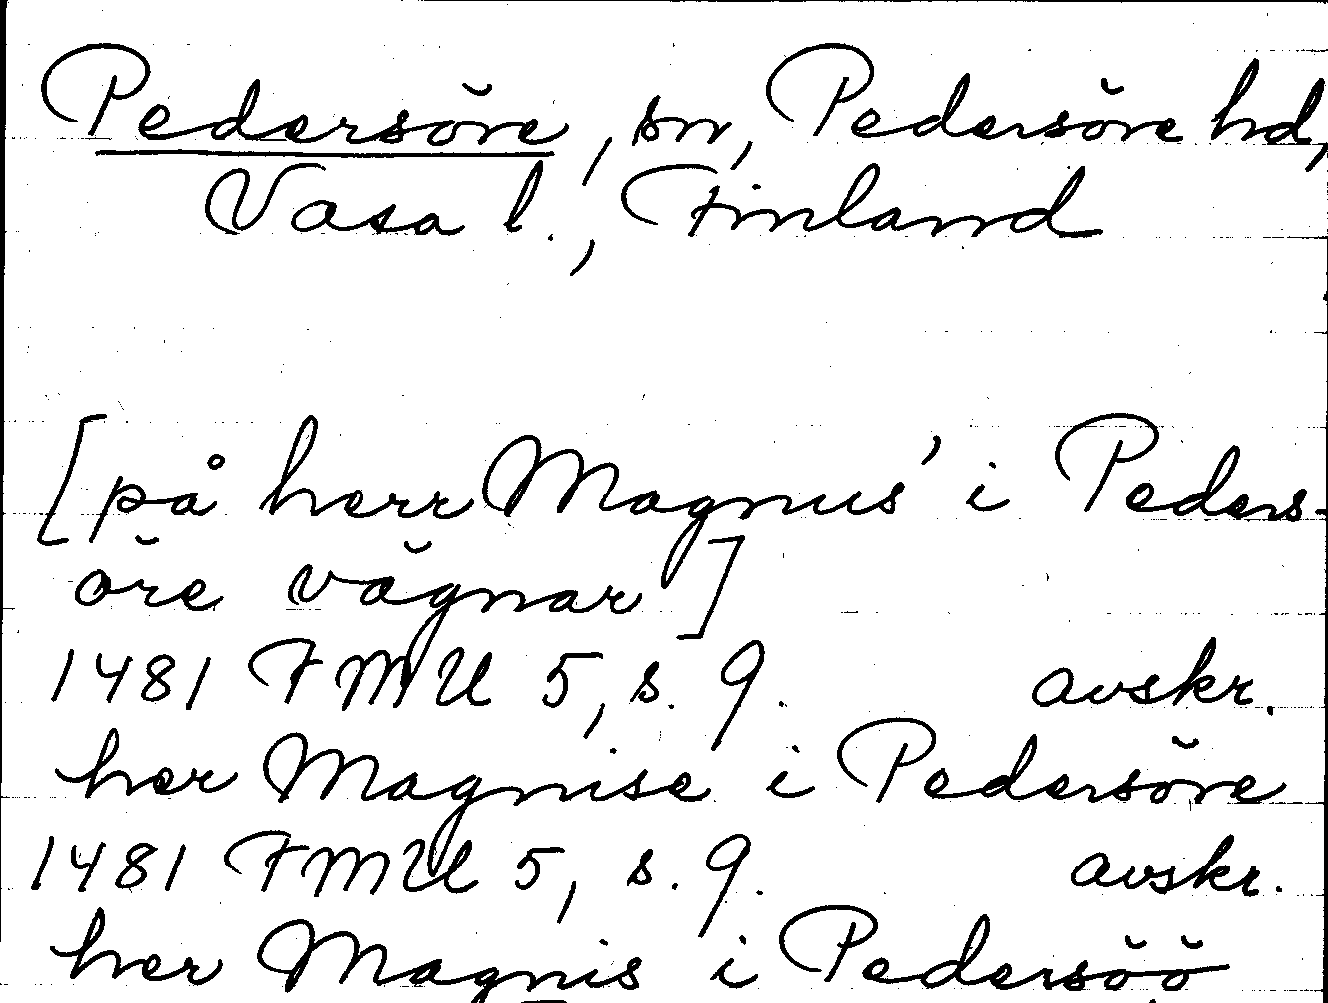 Pedersöre, sn, Pedersöre hd,
Vasa l., Finland
[på herr Magnus' i Peders-
öre vägnar]
1481 FMU 5, s. 9. avskr.
her Magnise i Pedersöre
1481 FMU 5, s. 9. avskr.
her Magnis i Pedersöö